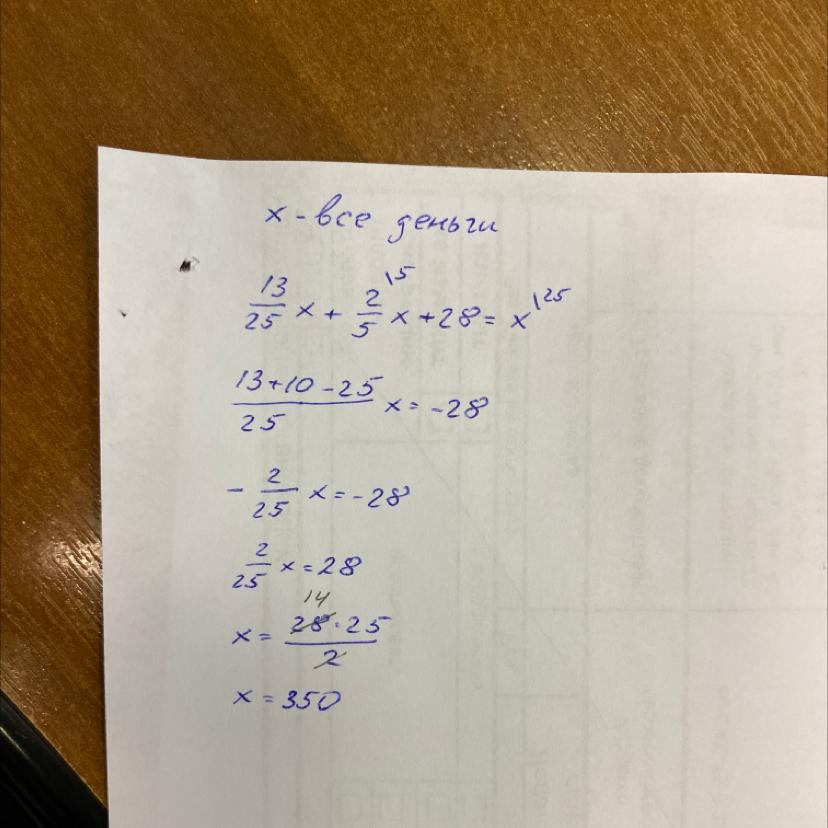 x - все деньги
13/25 x + 2/5 \5 x + 28 = x \25
13+10-25/25 x = -28
- 2/25 x = -28
2/25 x = 28
14
x = 28·25/2
x = 350